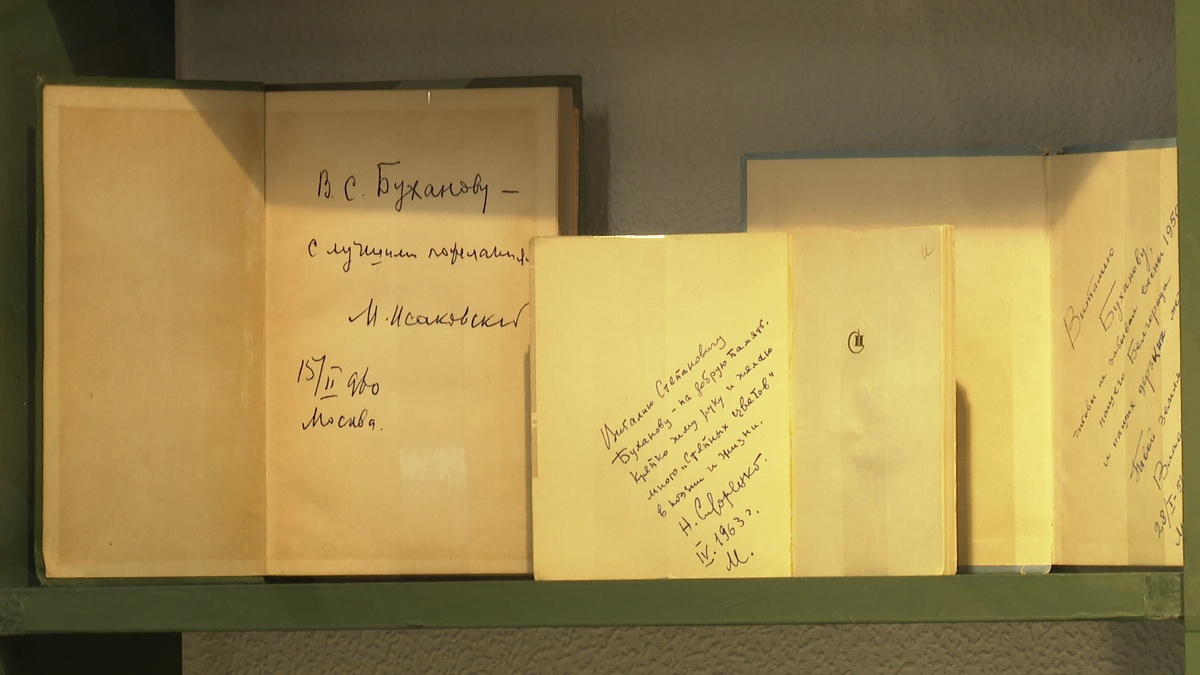 В. С. Буханову –
с лучшими пожелания
М. Исаковский
15/II 960
Москва.
Виталию Степановичу
Буханову – на добрую память.
Крепко жму руку и желаю
много „Степных цветов"
в поэзии и жизни.
Н.
IV. 1963 г.
М.
Виталию
Буханову,
чтобы не забывал
нашего Белгорода
и наших
Твой земляк
28/I-5